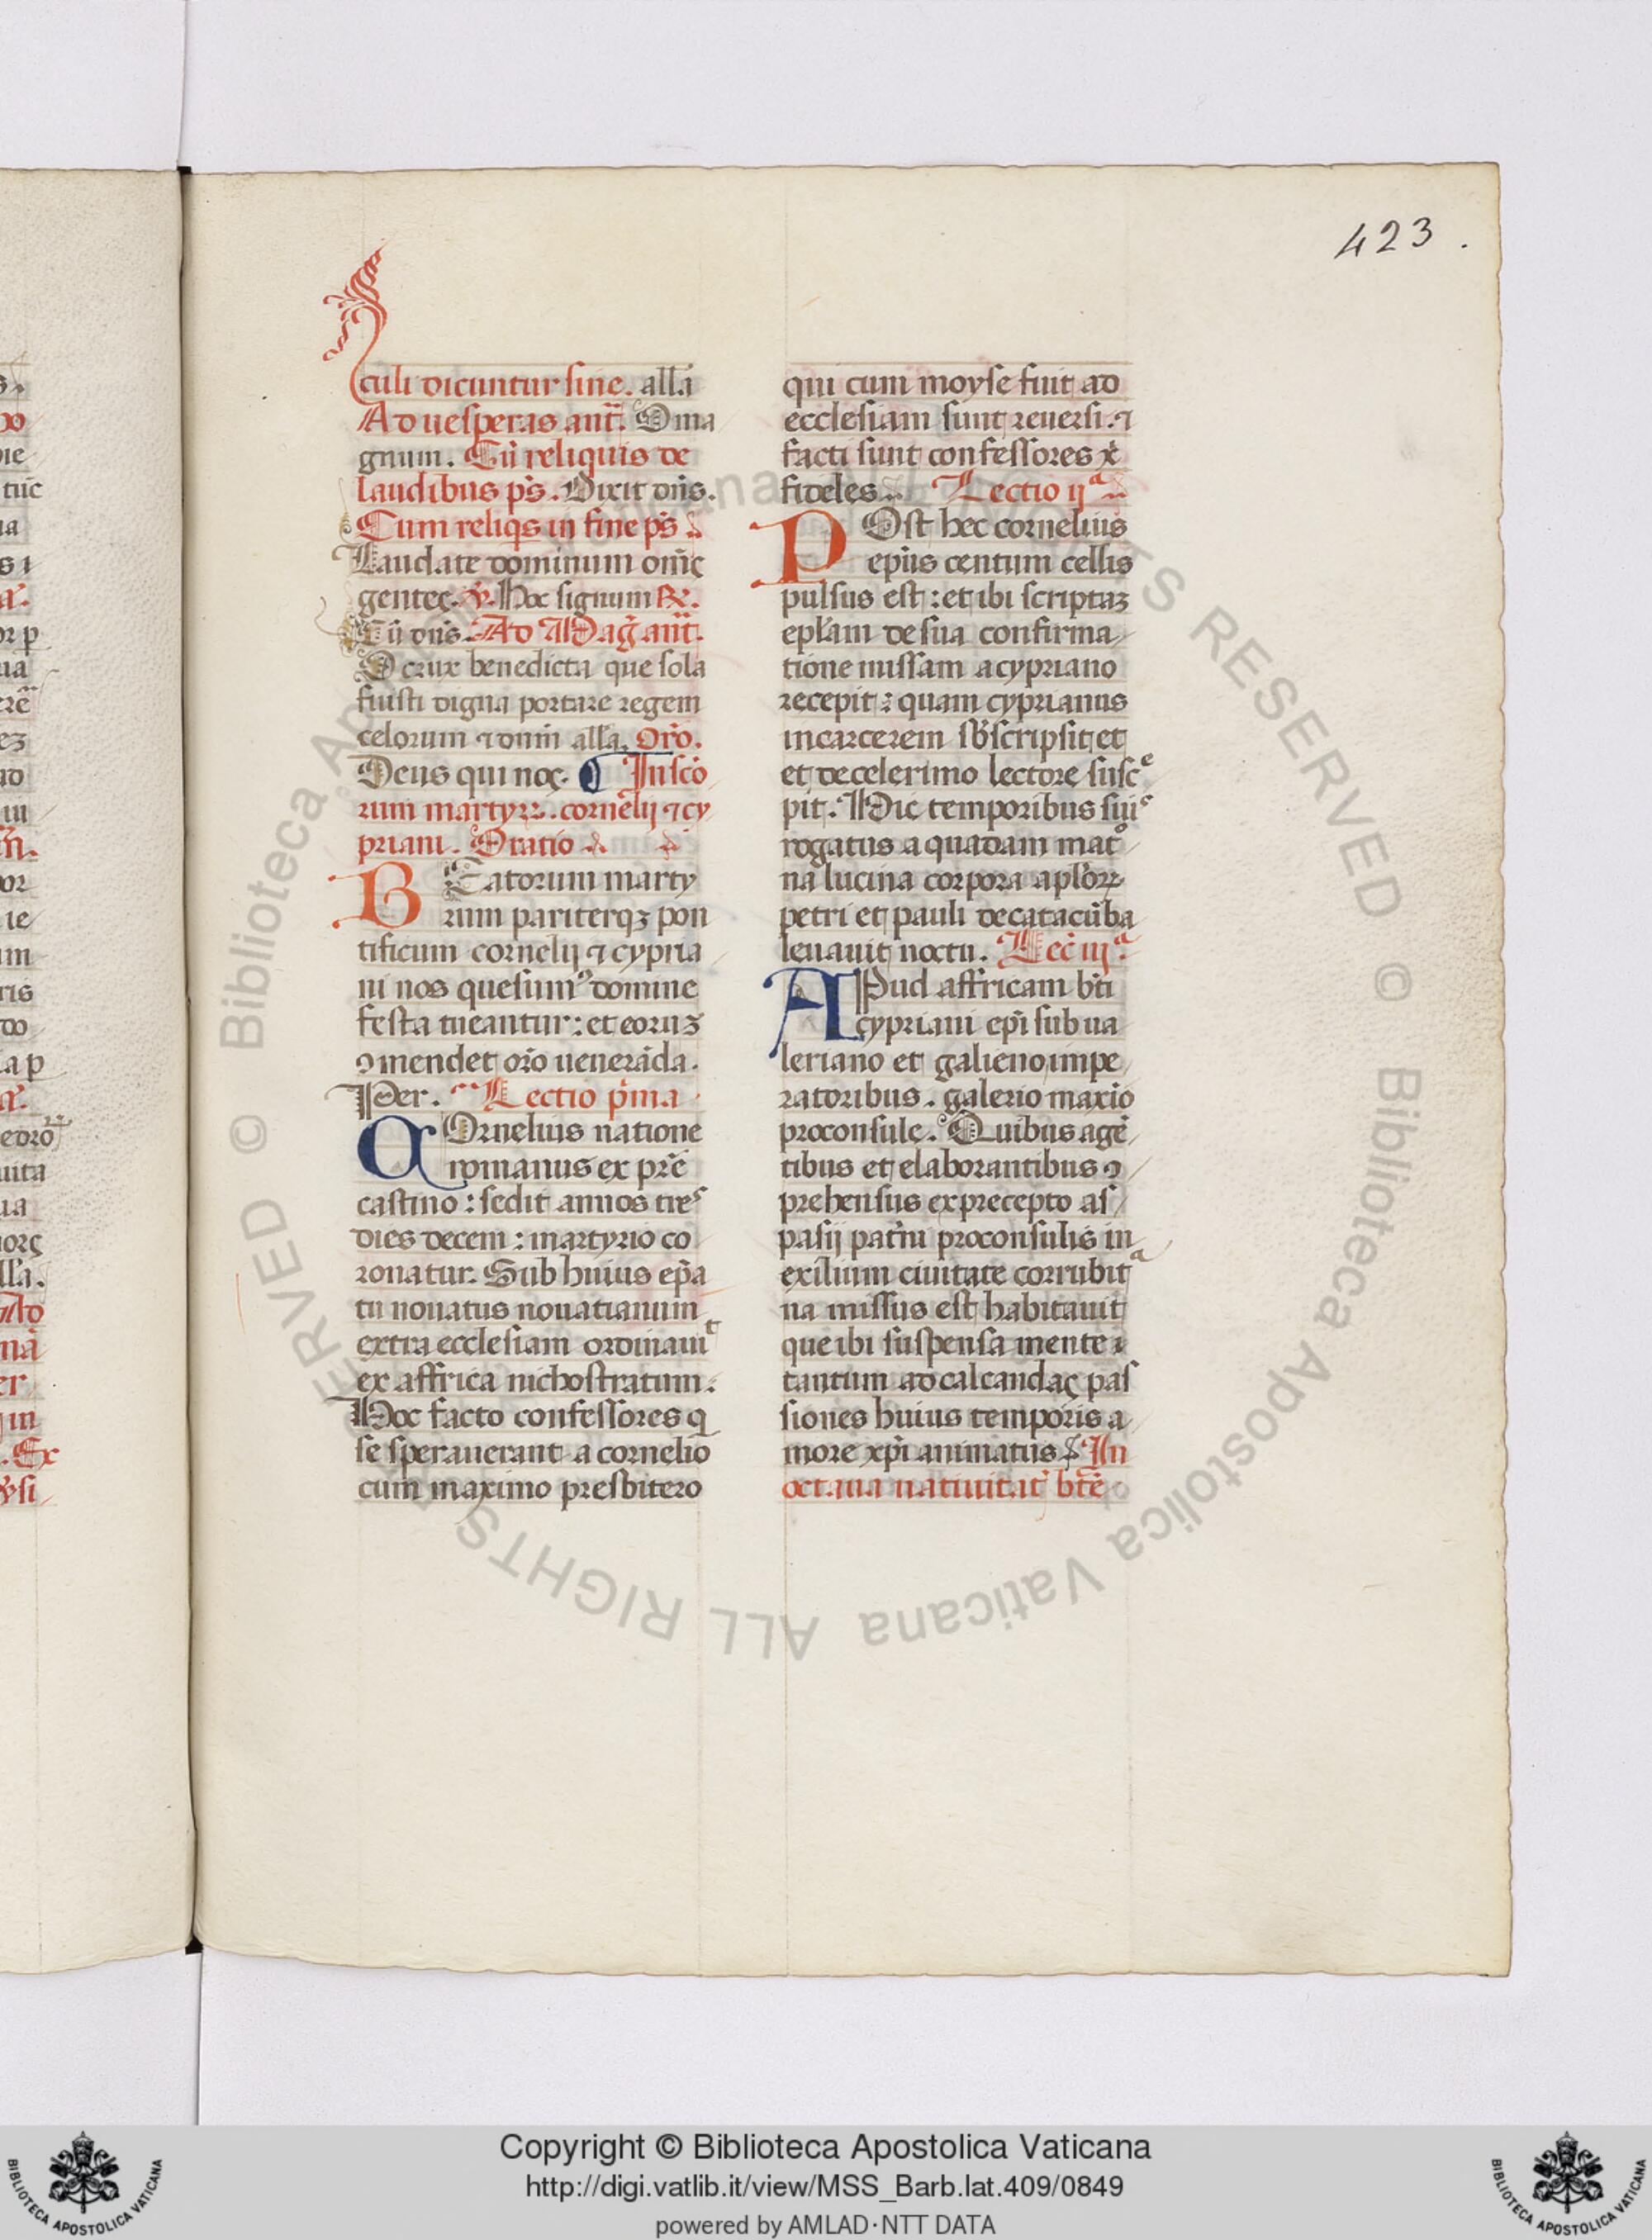 423.
culi dicuntur sine. all'a
Ad uesperas ant̄. O ma
gnum. Cū reliquis de
laudibus ps̄. Dixit dn̄s.
Cum reliqs in fine ps̄
Laudate dominum om̄ς
genteς. ℣. Hoc signum ℟.
Cū dn̄s. Ad Maḡ ant̄.
O crux benedicta que sola
fuisti digna portare regem
celorum ⁊ dnm̄ all'a. Orō.
Deus qui noς. ¶ In scō
rum martyꝝ. cornelij ⁊ cy
priani. Oratio
BEatorum marty
rum pariterqꝫ pon
tificum cornelij ⁊ cypria
ni nos quesumꝰ domine
festa tueantur: et eoruꝫ
ꝯmendet orō uenerāda.
Per. Lectio p̄ma
COrnelius natione
romanus ex prē
castino: sedit annos tres
dies decem: martyrio co
ronatur. Sub huius ep̄a
tu nouatus nouatianum
extra ecclesiam ordinauit
ex affrica nichostratum.
Hoc facto confessores q
se sperauerant a cornelio
cum maximo presbitero
qui cum moyse fuit ad
ecclesiam sunt reuersi. ⁊
facti sunt confessores xp̄i
fideles. Lectio ijª
POst hec cornelius
ep̄us centum cellis
pulsus est: et ibi scriptaꝫ
epl'am de sua confirma
tione missam a cypriano
recepit: quam cyprianus
in carcerem sb̄scripsit et
et de celerimo lectore susce
pit. Hic temporibus suis
rogatus a quadam matro
na lucina corpora apl'oꝝ
petri et pauli de catacūba
leuauit noctu. Lec̄ iijª.
APud affricam bt̄i
cypriani ep̄i sub ua
leriano et galieno impe
ratoribus. galerio maxio
proconsule. Quibus agē
tibus et elaborantibus ꝯ
prehensus ex precepto as
pasij pat̄ni proconsulis in
exilium ciuitate corrubita
na missus est habitauit
que ibi suspensa mente i
tantum ad calcandaς pas
siones huius temporis a
more xp̄i animatus. In
octaua natiuitat̄ bt̄e
Copyright © Biblioteca Apostolica Vaticana
http://digi.vatlib.it/view/MSS_Barb.lat.409/0849
powered by AMLAD·NTT DATA